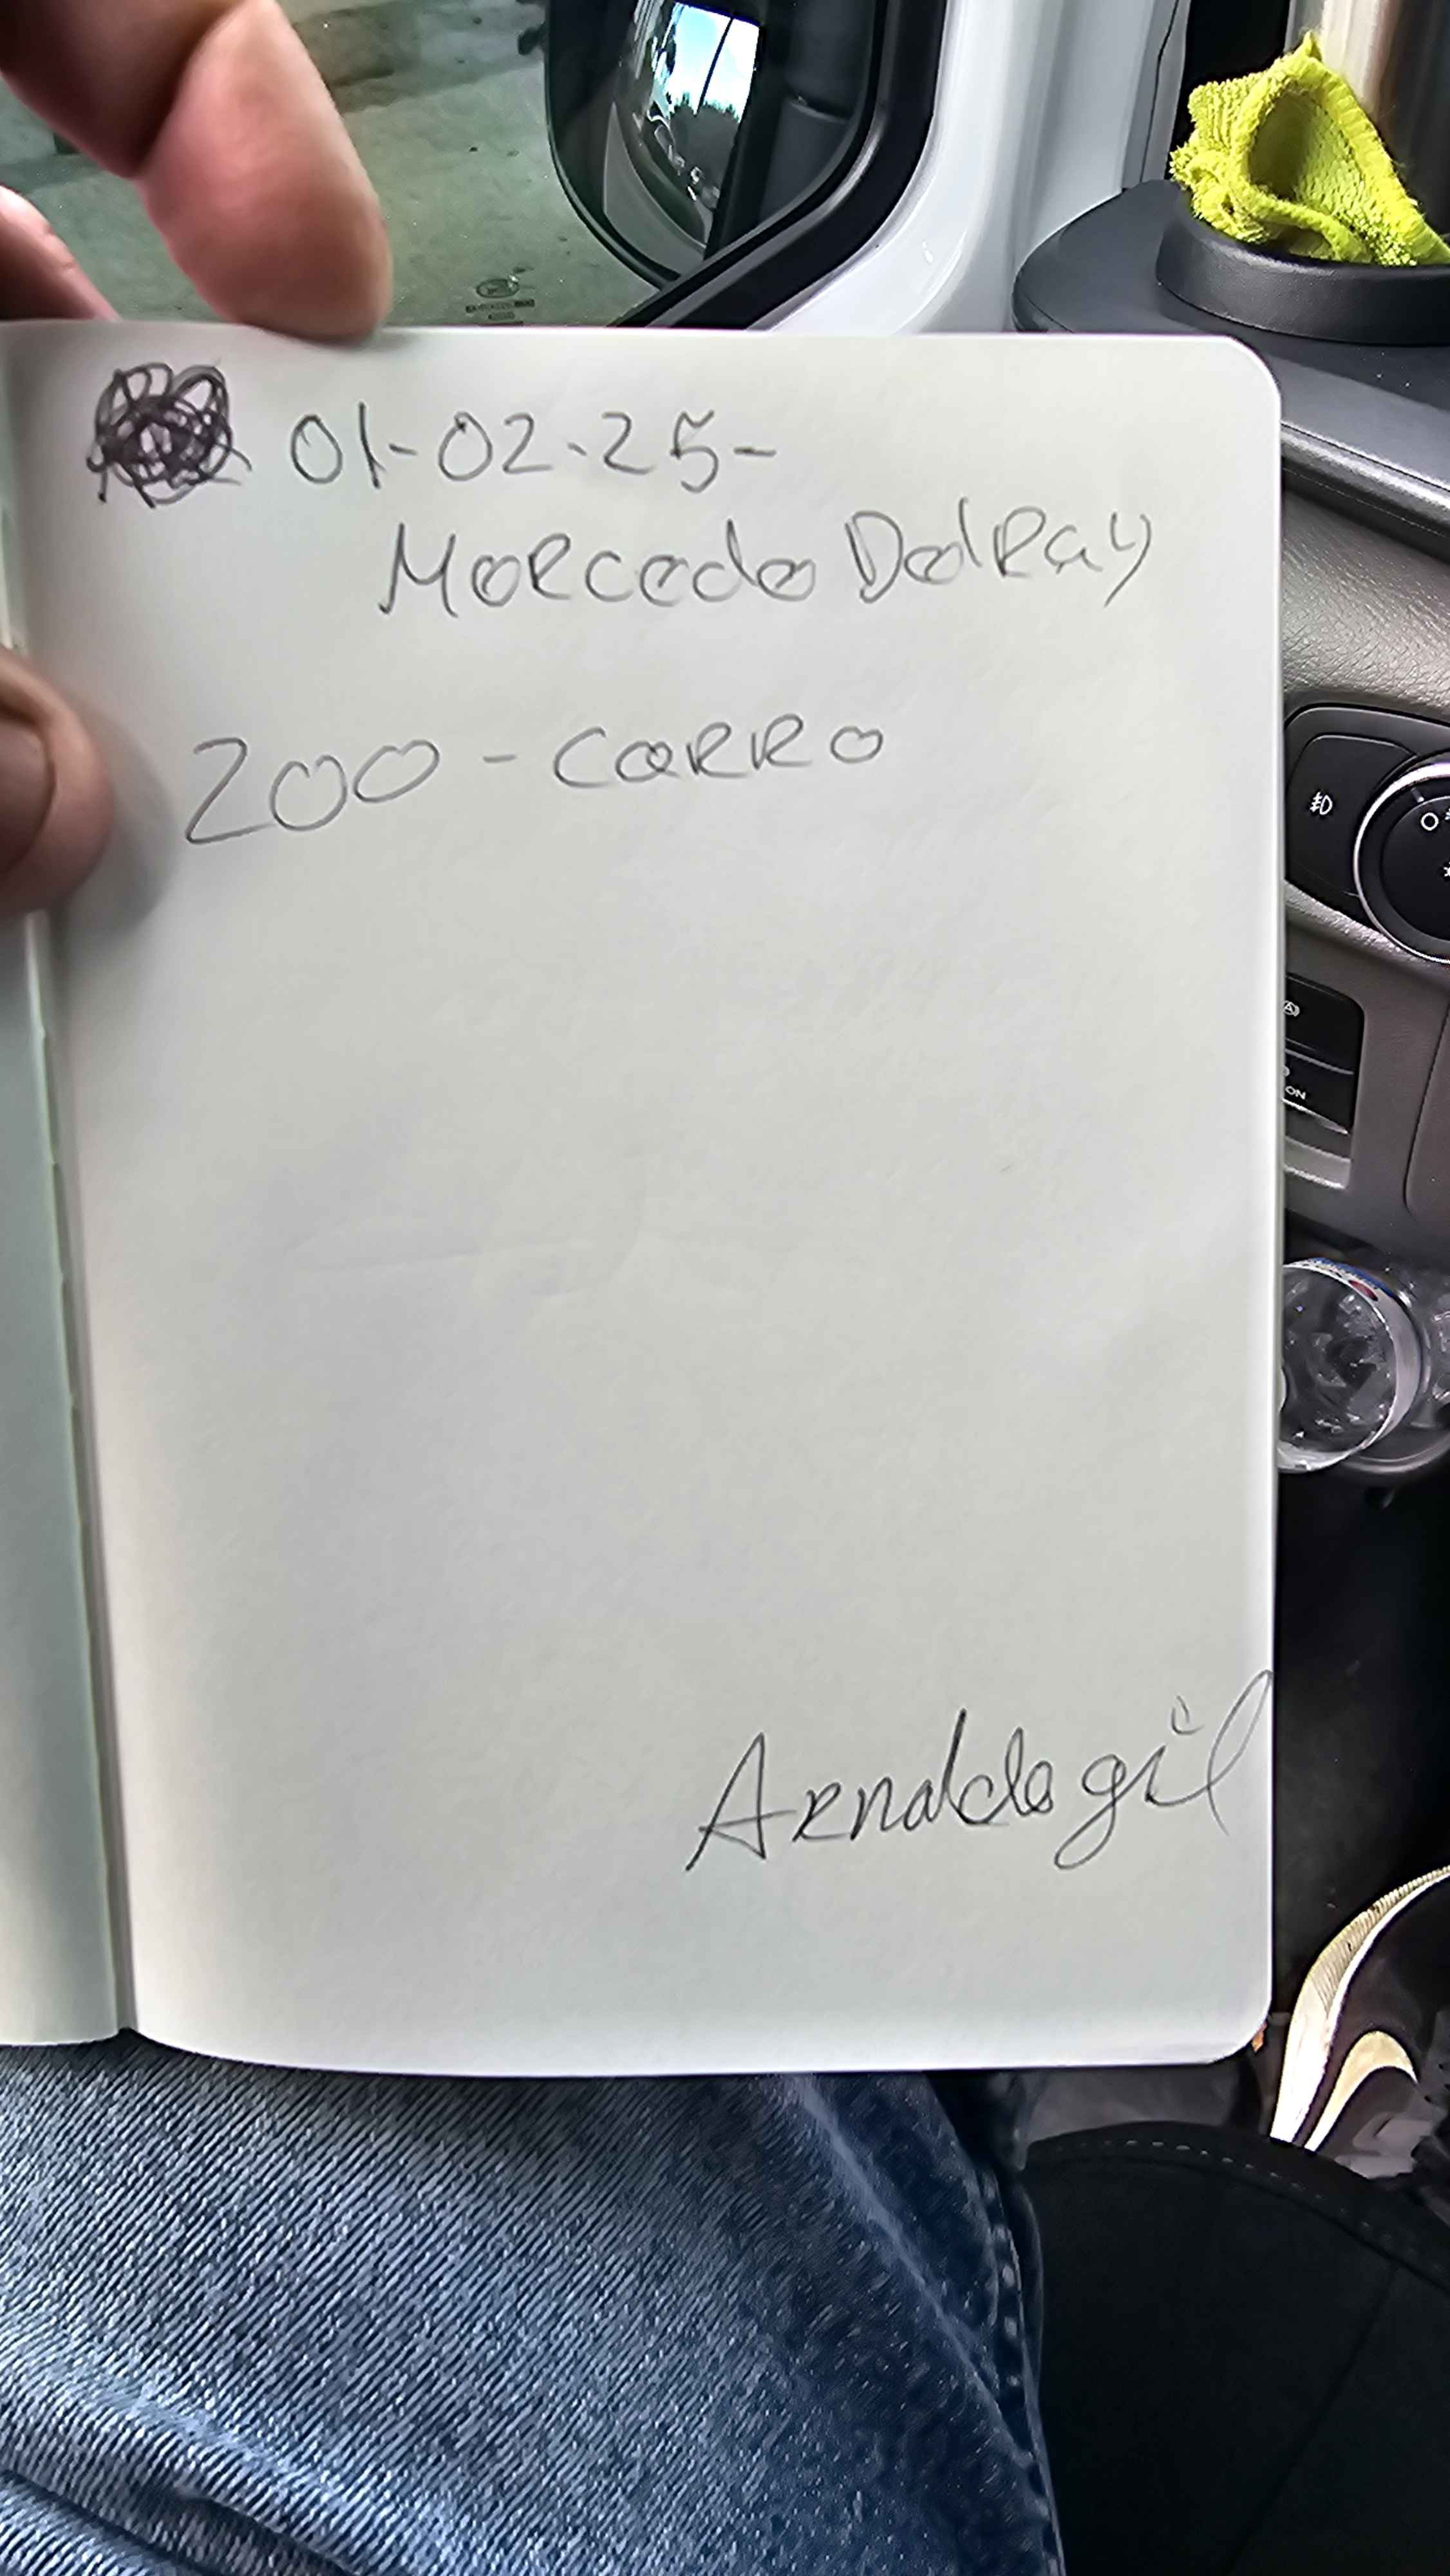 01-02-25-
Mercedo Delray
200 - CARRO
Arnaldo gil
ON